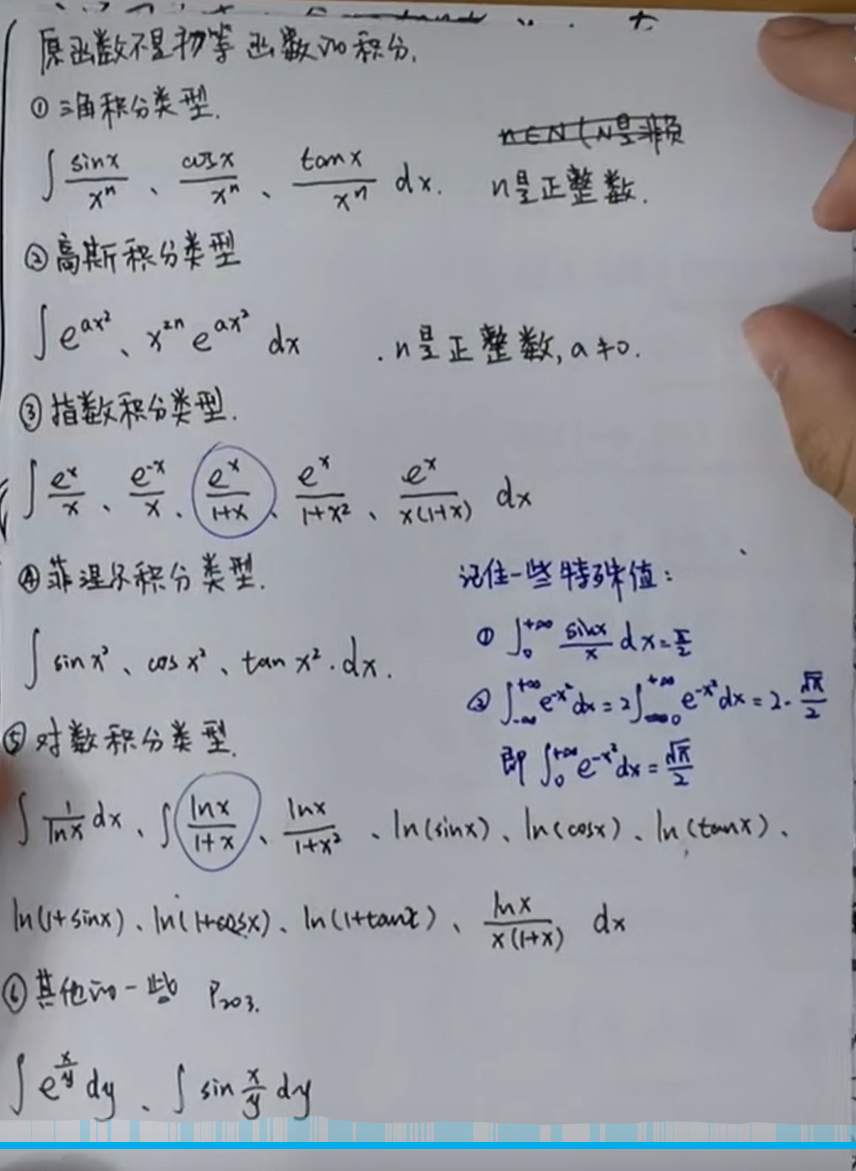 原函数不是初等函数的积分.
① 三角积分类型.
∫ sinx/xⁿ、cosx/xⁿ、tanx/xⁿ dx. n是正整数.
② 高斯积分类型
∫ e^{ax²}、x^{2n} e^{ax²} dx . n是正整数, a≠0.
③ 指数积分类型.
∫ e^x/x、e^{-x}/x、e^x/(1+x)、e^x/(1+x²)、e^x/(x(1+x)) dx
④ 菲涅尔积分类型.
∫ sin x²、cos x²、tan x². dx.
记住一些特殊值:
① ∫₀^{+∞} sinx/x dx = π/2
② ∫_{-∞}^{+∞} e^{-x²} dx = 2∫₀^{+∞} e^{-x²} dx = 2·√π/2
即 ∫₀^{+∞} e^{-x²} dx = √π/2
⑤ 对数积分类型.
∫ 1/lnx dx、∫ lnx/(1+x)、lnx/(1+x²)、ln(sinx)、ln(cosx)、ln(tanx)、
ln(1+sinx)、ln(1+cosx)、ln(1+tanx)、lnx/(x(1+x)) dx
⑥ 其他的一些 P203.
∫ e^{x/y} dy、∫ sin x/y dy